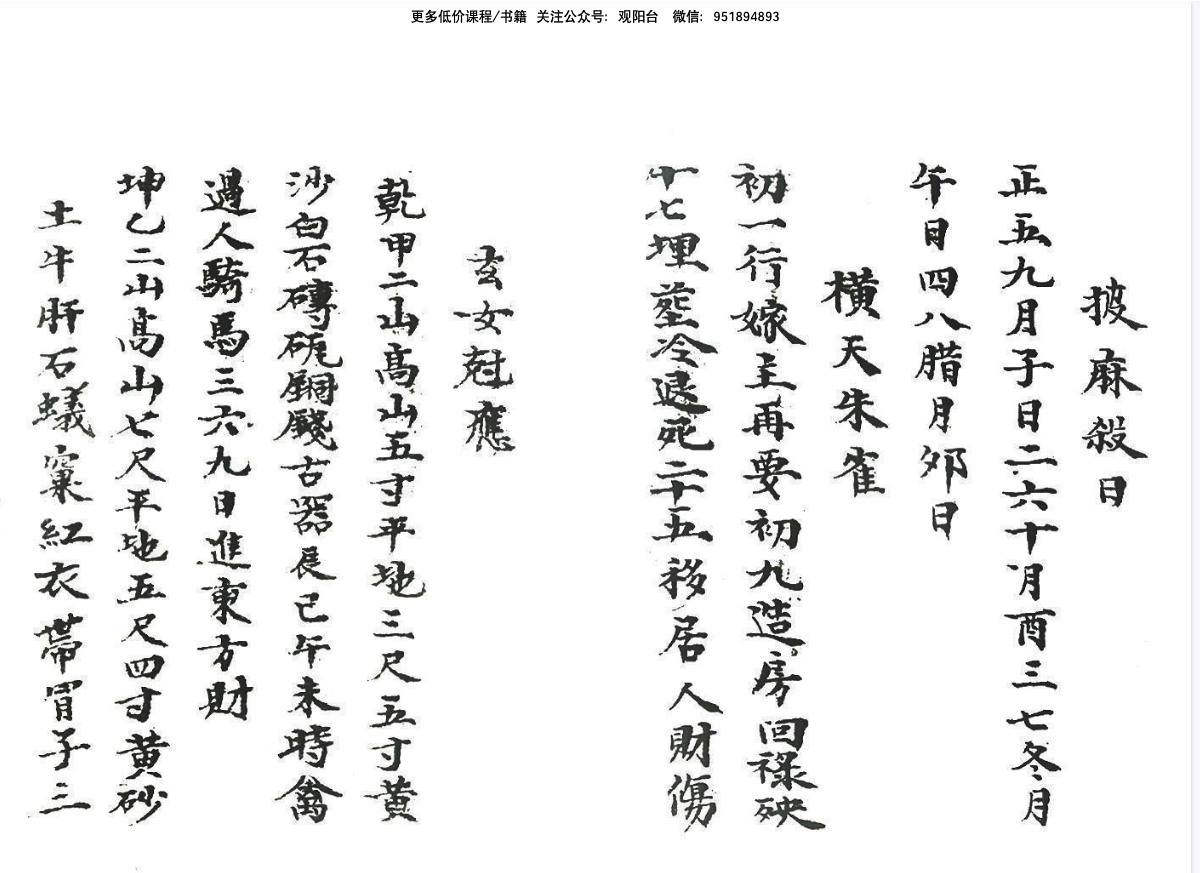 更多低价课程/书籍 关注公众号: 观阳台 微信: 951894893
披麻殺日
正五九月子日二六十月酉三七冬月
午日四八腊月夘日
橫天朱雀
初一行嫁主再要初九造房回祿殃
十七埋塟冷退死二十五移居人財傷
玄女尅應
乾甲二山高山五寸平地三尺五寸黄
沙白石磚砥銅錢古器辰巳午未時禽
過人騎馬三六九日進東方財
坤乙二山高山七尺平地五尺四寸黄砂
土牛肝石蟻窠紅衣帶冐子三